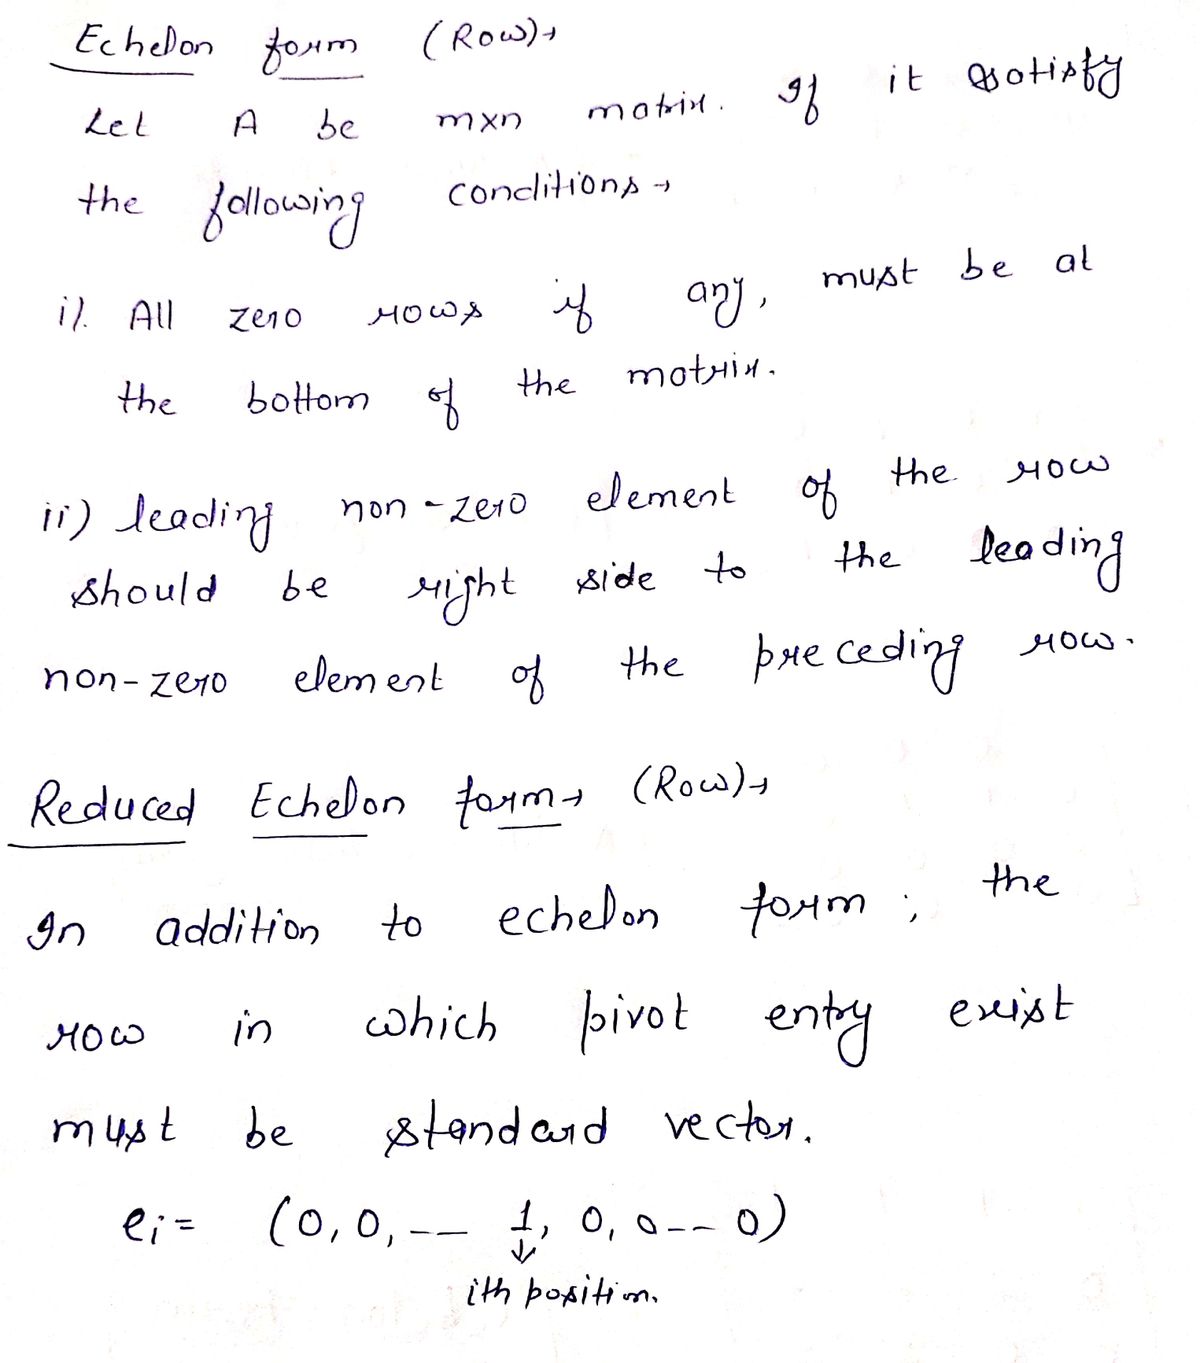 Echelon form (Row)→
Let A be mxn matrix. If it satisfy
the following conditions →
i). All zero rows if any, must be at
the bottom of the matrix.
ii) leading non-zero element of the row
should be right side to the leading
non-zero element of the preceding row.
Reduced Echelon form→ (Row)→
In addition to echelon form ; the
row in which pivot entry exist
must be standard vector.
ei = (0, 0, -- 1, 0, 0 -- 0)
↓
ith position.